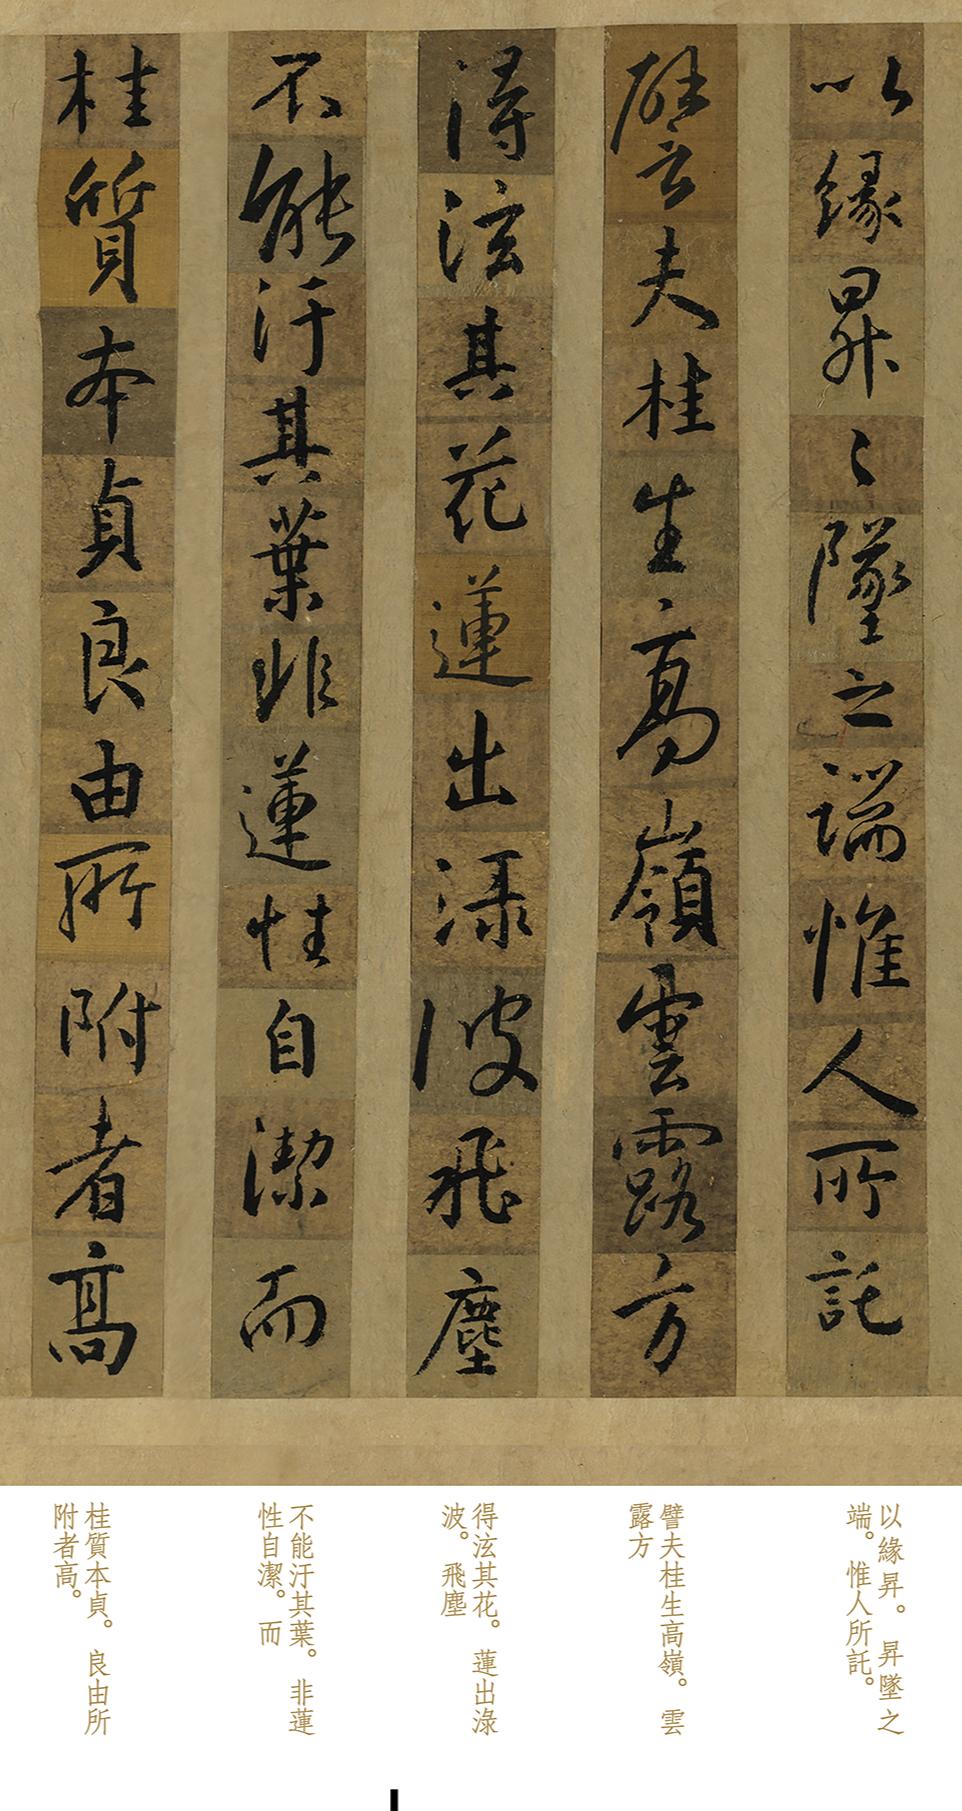 以緣昇〻墜之端惟人所託
譬夫桂生高嶺雲露方
得泫其花蓮出淥波飛塵
不能汙其葉非蓮性自潔而
桂質本貞良由所附者高
以緣昇。昇墜之
端。惟人所託。
譬夫桂生高嶺。雲
露方
得泫其花。蓮出淥
波。飛塵
不能汙其葉。非蓮
性自潔。而
桂質本貞。良由所
附者高。